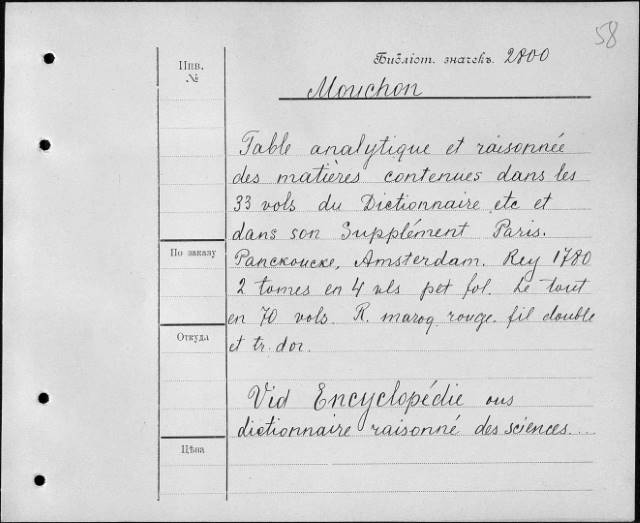 58
Библіот. значекъ. 2800
Инв.
№
Mouchon
Table analytique et raisonnée
des matières contenues dans les
33 vols du Dictionnaire etc et
dans son Supplément Paris.
По заказу
Panckoucke, Amsterdam. Rey 1780
2 tomes en 4 vls pet fol. Le tout
en 70 vols. R. maroq. rouge. fil double
Откуда
et tr. dor.
Vid Encyclopédie ous
dictionnaire raisonné des sciences....
Цѣна